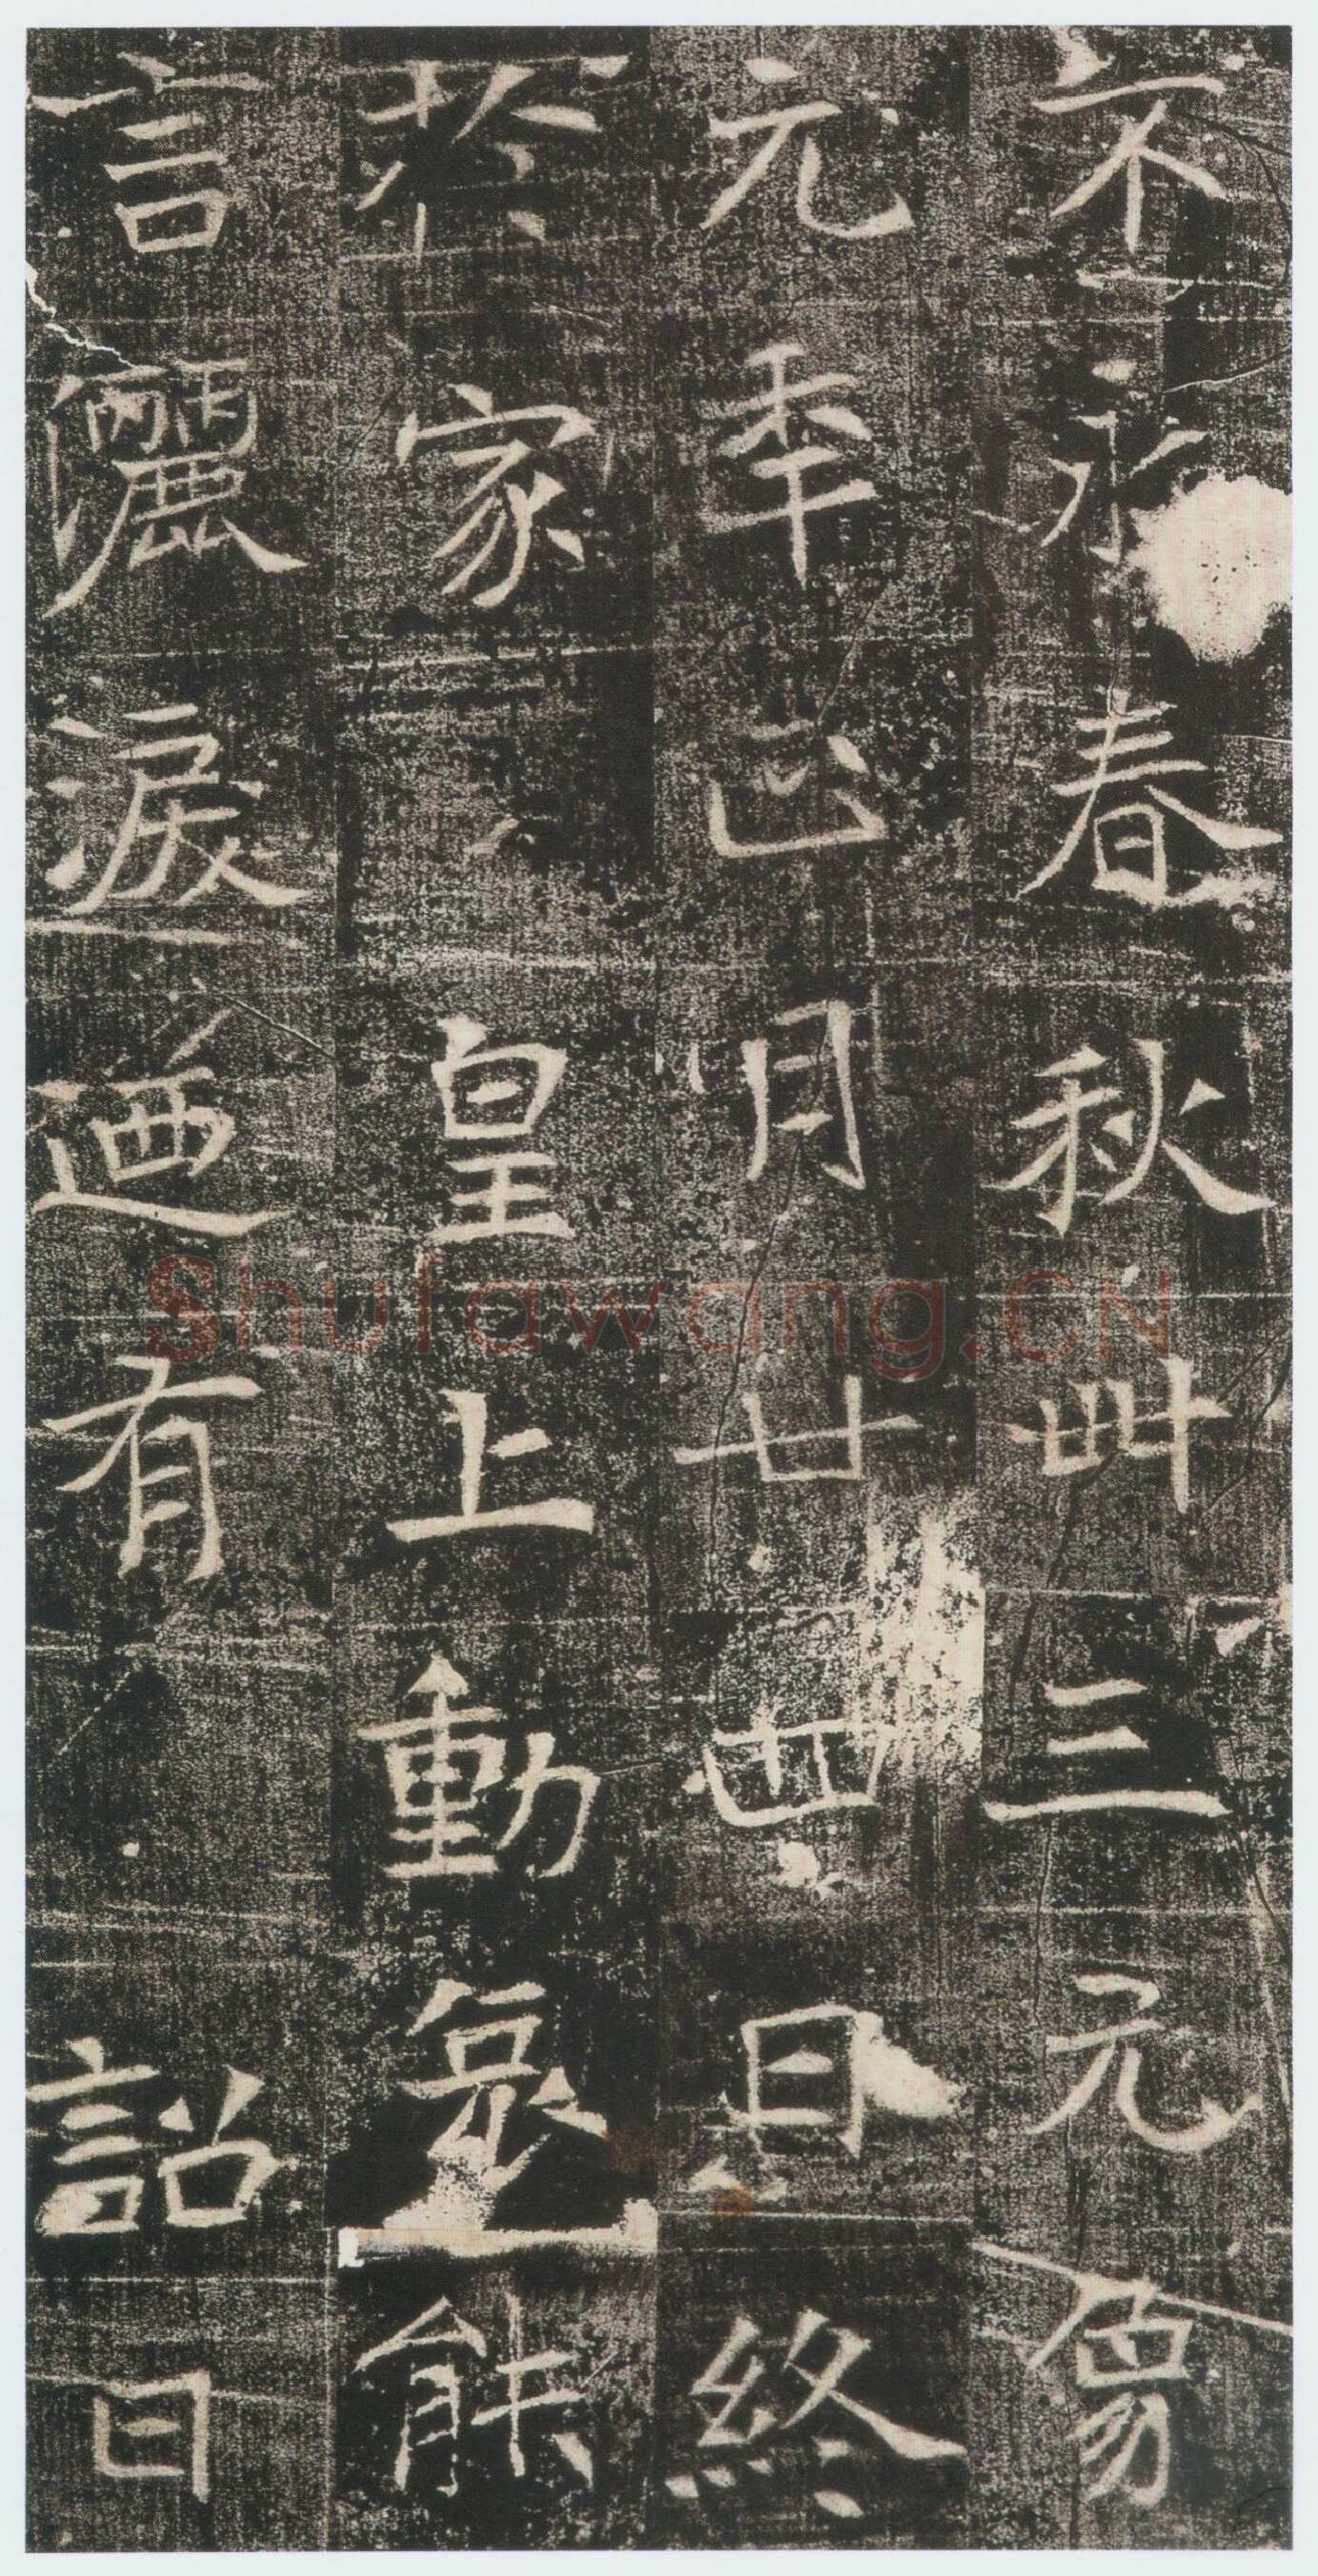 不永春秋卌三元象
元年正月廿四日終
於家 皇上動哀能
言灑淚迺有 詔曰
Shufawang.CN